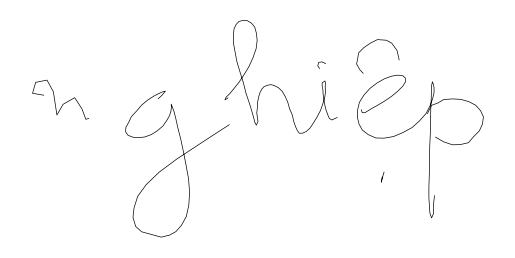 nghiệp